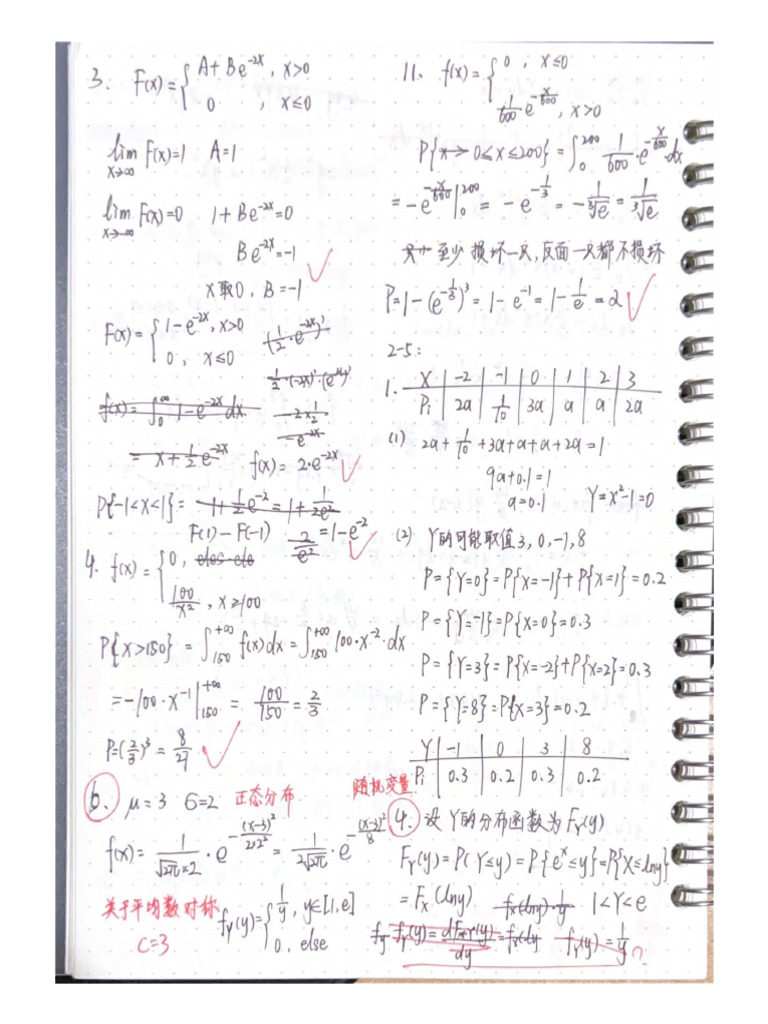 3. F(x)={ A+Be^{-2x}, x>0
0 , x≤0
lim_{x→∞} F(x)=1 A=1
lim_{x→-∞} F(x)=0 1+Be^{-2x}=0
Be^{-2x}=-1
x取0, B=-1
F(x)={ 1-e^{-2x}, x>0
0, x≤0
f(x)=∫_0^∞ 1-e^{-2x} dx
= x+1/2 e^{-2x}
f(x)=2·e^{-2x}
P{-1<x<1}= 1+1/2 e^{-2} = 1+1/2e^2
F(1)-F(-1) 2/e^2 =1-e^{-2}
4. f(x)={ 0,
100/x^2, x≥100
P{X>150} = ∫_{150}^{+∞} f(x)dx = ∫_{150}^{+∞} 100·x^{-2}·dx
=-100·x^{-1}|_{150}^{+∞} = 100/150 = 2/3
P=(2/3)^3 = 8/27
6. μ=3 6=2 正态分布
f(x)= 1/√2π×2 · e^{-(x-3)^2/2×2^2} = 1/2√2π · e^{-(x-3)^2/8}
关于平均数对称
C=3
f_Y(y)={ 1/y, y∈[1,e]
0, else
11. f(x)={ 0, x≤0
1/600 e^{-x/600}, x>0
P{x→0≤x≤200}=∫_0^{200} 1/600·e^{-x/600}·dx
=-e^{-x/600}|_0^{200} = -e^{-1/3} = -1/∛e = 1/∛e
至少损坏一只,反面一只都不损坏
P=1-(e^{-1/3})^3=1-e^{-1}=1-1/e=2
2-5:
1. X -2 -1 0 1 2 3
Pi 2a 1/10 3a a a 2a
(1) 2a+1/10+3a+a+a+2a=1
9a+0.1=1
a=0.1 Y=x^2-1=0
(2) Y的可能取值3,0,-1,8
P={Y=0}=P{X=-1}+P{X=1}=0.2
P={Y=-1}=P{X=0}=0.3
P={Y=3}=P{X=-2}+P{X=2}=0.3
P={Y=8}=P{X=3}=0.2
Y -1 0 3 8
Pi 0.3 0.2 0.3 0.2
随机变量
4. 设Y的分布函数为F_Y(y)
F_Y(y)=P(Y≤y)=P{e^x≤y}=P{X≤lny}
=F_X(lny) f_X(lny)·1/y 1<Y<e
f_Y(y)=dF_Y(y)/dy=f_X(ly f_Y(y)=1/y ?